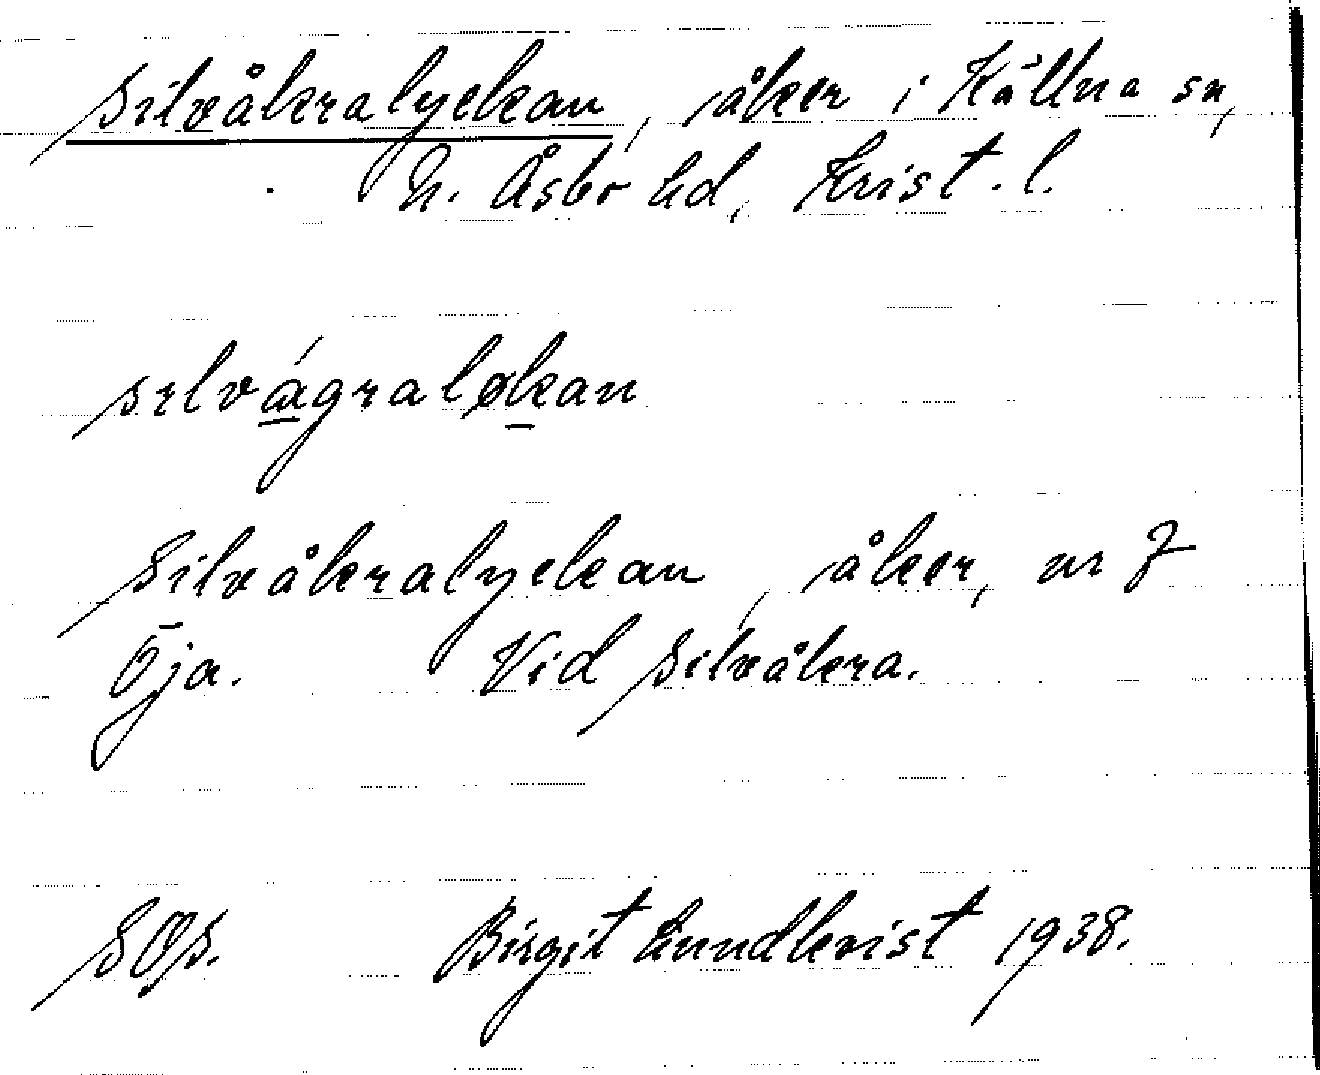 Silvåkralyckan, åker i Källna sn,
N. Åsbo hd, Krist. l.
sɪlvágraløkan
Silvåkralyckan, åker, nr 7
Öja. Vid Silvåkra.
SOS. Birgit Lundkvist 1938.